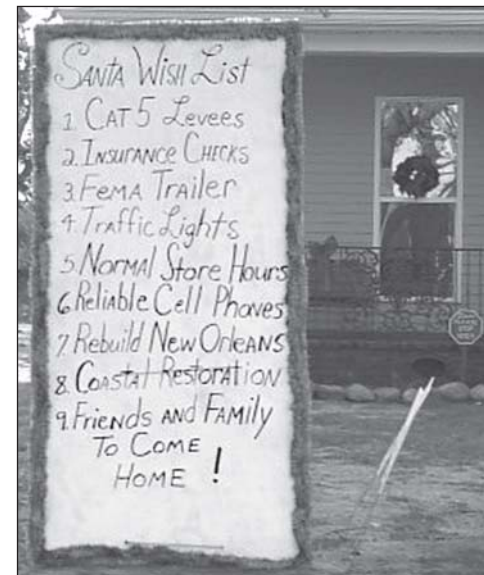 Santa Wish List
1. CAT 5 Levees
2. Insurance Checks
3. Fema Trailer
4. Traffic Lights
5. Normal Store Hours
6. Reliable Cell Phones
7. Rebuild New Orleans
8. Coastal Restoration
9. Friends and Family
To Come
Home !